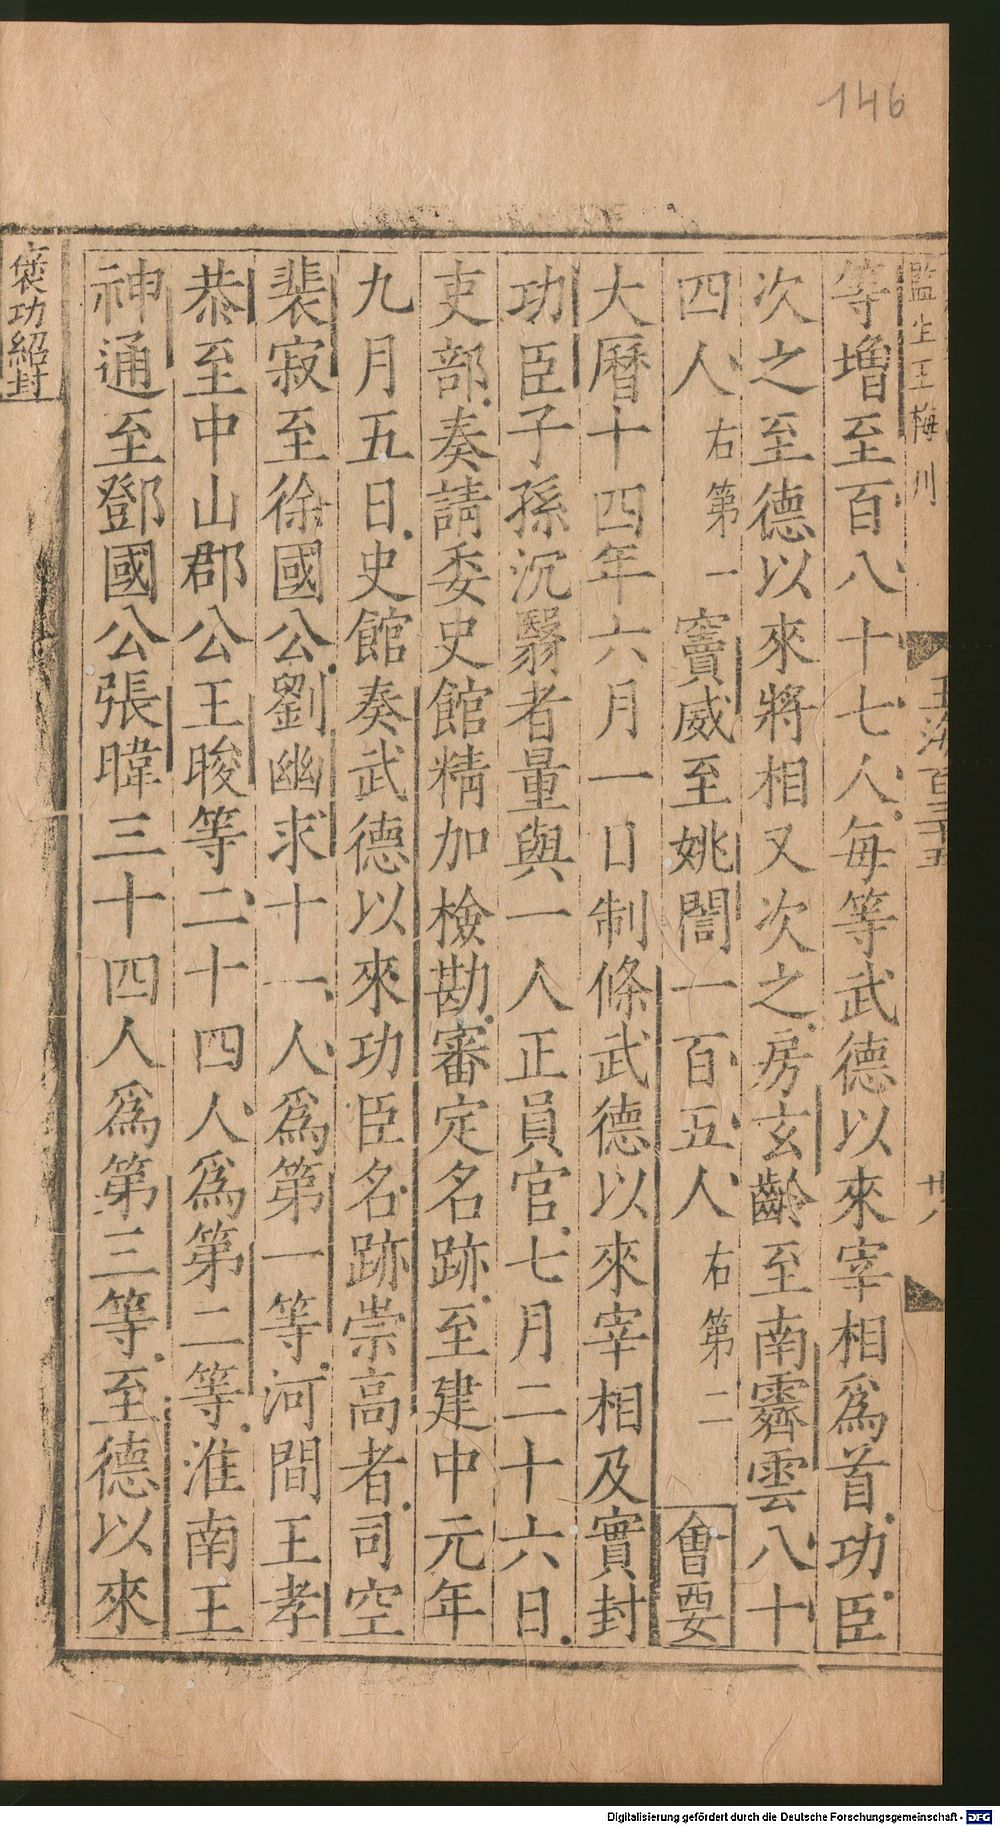 146
監生王梅川
玉海百三十五
廿八
等增至百八十七人每等武德以來宰相爲首功臣
次之至德以來將相又次之房玄齡至南霽雲八十
四人右第一竇威至姚誾一百五人右第二會要
大曆十四年六月一日制條武德以來宰相及實封
功臣子孫沉翳者量與一人正員官七月二十六日
吏部奏請委史館精加檢勘審定名跡至建中元年
九月五日史館奏武德以來功臣名跡崇高者司空
裴寂至徐國公劉幽求十一人爲第一等河間王孝
恭至中山郡公王晙等二十四人爲第二等淮南王
神通至鄧國公張暐三十四人爲第三等至德以來
褒功紹封
Digitalisierung gefördert durch die Deutsche Forschungsgemeinschaft - DFG